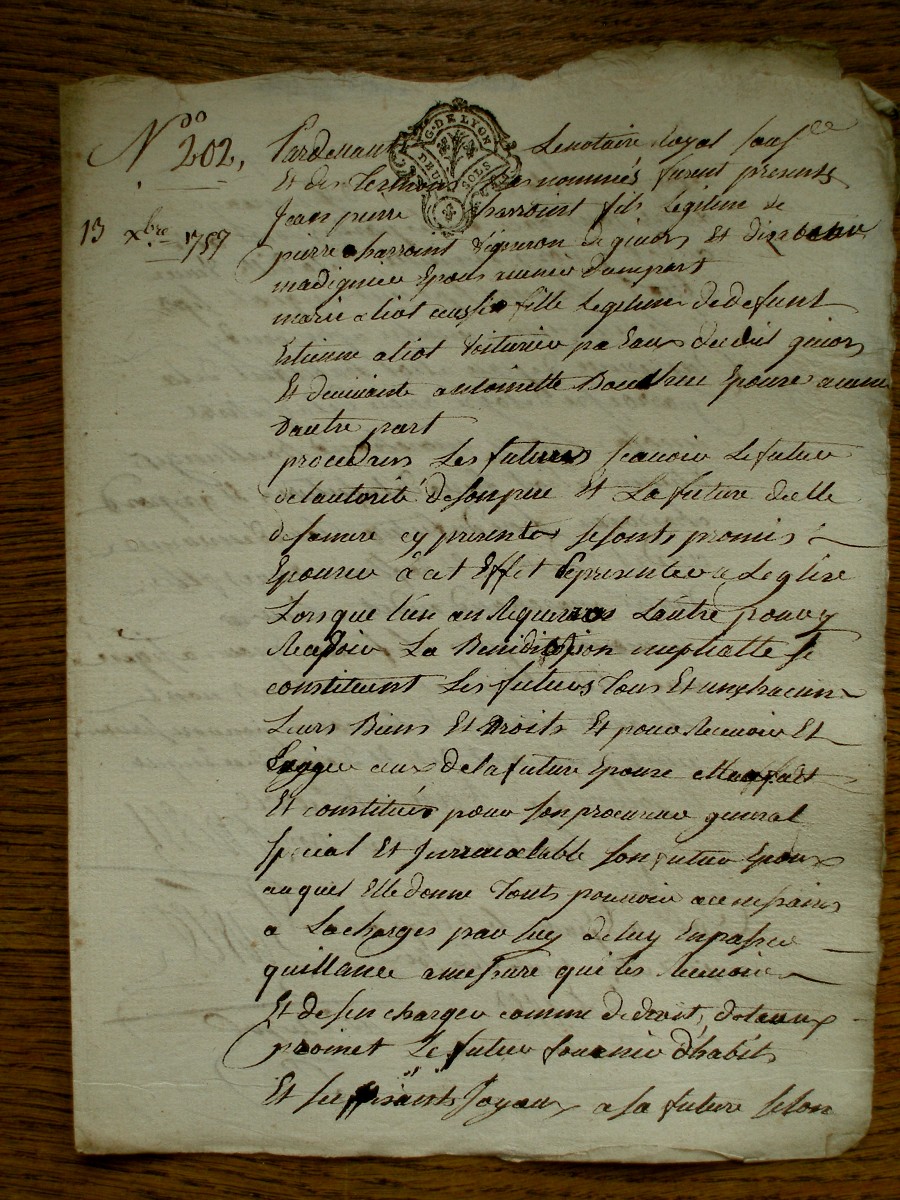 N° 202,
13 xbre 1757
G. DE LYON
DEUX SOLS
Pardevant Le notaire Royal sous
Et des Temoins Bas nommés furent presents
Jean pierre Charvoint fils Legitime de
pierre charvoint vigneron de givors Et
madignier Epoux d'une part
marie aliot aussi fille Legitime de defunt
Estienne aliot voiturier par Eaux dudit givors
Et de vivante antoinette Epouse
Dautre part
procedans Les futurs scavoir Le futur
de l'autorité de son pere Et La future de celle
de sa mere cy presentes se sont promis
Epouser à cet Effet se presenter a Leglise
Lorsque l'un en Requerra L'autre pour y
Recevoir La Benediction nuptialle se
constituent Les futurs Tous Et un chacun
Leurs Biens Et Droits Et pour Recevoir Et
Exiger ceux de la future Epouse Elle a fait
Et constitué pour son procureur general
special Et Jrrevocable son futur Epoux
auquel Elle donne Touts pouvoir
a La charges par luy de luy En passer
quittance a mesure qu'il les Recevoir
Et de s'en charger comme de droit,
promet Le futur fournir d'habits
Et suffisants Joyaux a sa future selon